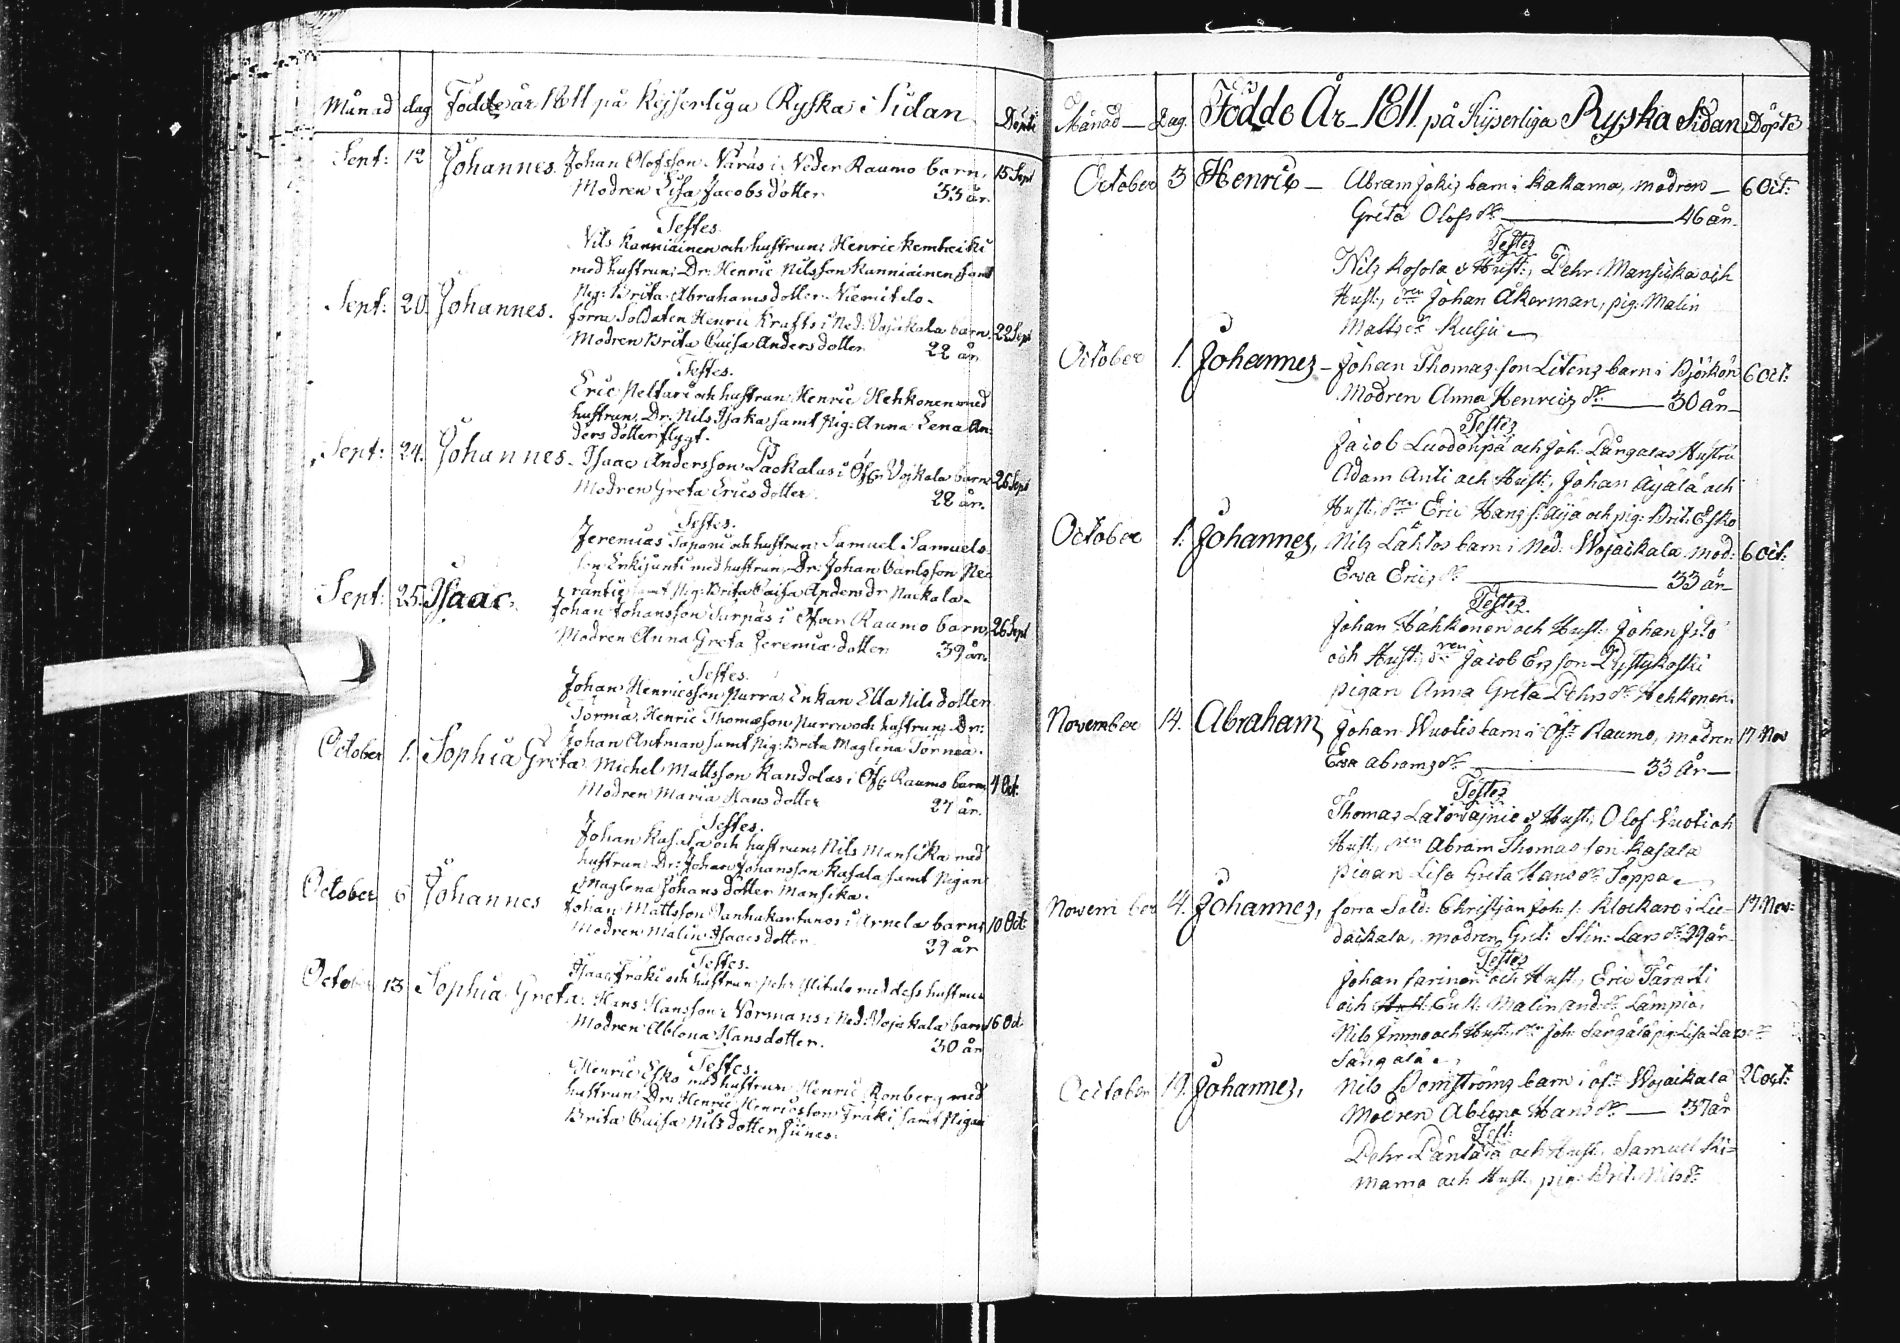 Månad dag Födde år 1811 på Kejserliga Ryska Sidan Döpte
Sept: 12 Johannes. Johan Olofsson Naras i Neder Raumo barn, 15 Sept
Modren Lisa Jacobsdotter 33 år.
Testes.
Nils Kanniainen och hustrun; Henric Kembeiki
med hustrun; Dr: Henric Nilsson Kanniainen samt
Pig: Brita Abrahamsdotter Niemitelo.
Sept: 20. Johannes. förra Soldaten Henric Krafts i Ned: Vojakala barn. 22 Sept
Modren Brita Cajsa Andersdotter 22 år.
Testes.
Eric Peltari och hustrun Henric Hehkonen med
hustrun, Dr: Nils Isaka samt Pig: Anna Lena An:
ders dotter flygt.
Sept: 24. Johannes. Isaac Andersson Packalas i Öfr Vojkala barn 26 Sept
Modren Greta Ericsdotter. 28 år.
Testes.
Jeremias Taponi och hustrun; Samuel Samuels:
son Erkijunti med hustrun, Dr: Johan Carlsson
samt Pig: Brita Caisa Anders dr Nackala.
Sept: 25. Isaac. Johan Johansson Surpas i Öfver Raumo barn, 26 Sept
Modren Anna Greta Jeremiæ dotter 39 år.
Testes.
Johan Henricsson Purra Enkan Ella Nils dotter
Torma, Henric Thomasson Purra och hustrun; Dr:
Johan Antman samt Pig: Brita Maglena Tornea.
October 1. Sophia Greta. Michel Mattsson Kandolas i Öfr Raumo barn, 4 Oct:
Modren Maria Hansdotter 27 år.
Testes.
Johan och hustrun; Nils Mansika med
hustrun, Dr: Johan Johansson Kasala samt Pigan
Maglena Johans dotter Mansika.
October 6 Johannes Johan Mattsson Vanhakartanos i Arpela barn, 10 Oct
Modren Malin Isaacsdotter. 29 år
Testes.
Isaac Fraki och hustrun med dess hustrun
October 13 Sophia Greta. Hans Hansson Normans i Ned: Vojakala barn 16 Oct
Modren Ablona Hansdotter. 30 år
Testes.
Henric Esko med hustrun Henric Ronberg med
hustrun Dr: Henric Henricsson Fraki samt Pigan
Brita Caisa Nilsdotter
Månad Dag. Födde År 1811. på Kijserliga Ryska Sidan Döpte
October 3 Henric Abram Jokiz barn i Kakama, modren 6 Oct:
Greta Olofs dr 46 år.
Testes
Nilz Kosola & Hust:, Pehr Mansicka och
Hust:, Johan Åkerman, pig: Malin
Matts dr Kulju
October 1. Johannes Johan Thomasson Litenz barn i Björkön 6 Oct:
Modren Anna Henrics dr 30 år
Testes
Jacob Luodonpä och Joh: Långalas Hustru
Adam Anti och Hust:, Johan Äijälä och
Hust: Eric Hans s: Äijä och pig: Brit: Esko
October 1. Johannes, Nilz Laktos barn i Ned: Wojaikala mod: 6 Oct:
Eva Erics dr 33 år
Testes.
Johan Hahkonen och Hust: Johan
och Hust: Jacob Ers son Pystykoski
pigan Anna Greta Pehrs dr Hehkonen.
November 14. Abraham Johan Wuotis barn i Öfr Raumo, modren 17 Nov
Eva Abrams dr 33 År
Testes
Thomas Latowajnio & Hust:, Olof Vuoti och
Hust: Abram Thomas son Kasala
pigan Lisa Greta Hans dr Seppa
November 4. Johannes, forra Sold: Christjan Joh: s: Klockare i Lie- 17 Nov:
dackala, modren Gret: Stin: Lars dr 29 år
Testes
Johan Farinen och Hust: Eric Tararti
och Enk: Malin And: dr Lampio,
Nils Immo och Hust: Joh: Sangala pig: Lisa Lars dr
Sangala
October 19. Johannes, Nils Bomströms barn i öfr Wojaikala 20 Oct:
Modren Ablona Hans dr 37 år
Test:
Pehr och Hust: Samuel Ki=
mama och Hust: pig: Brit: Nils dr